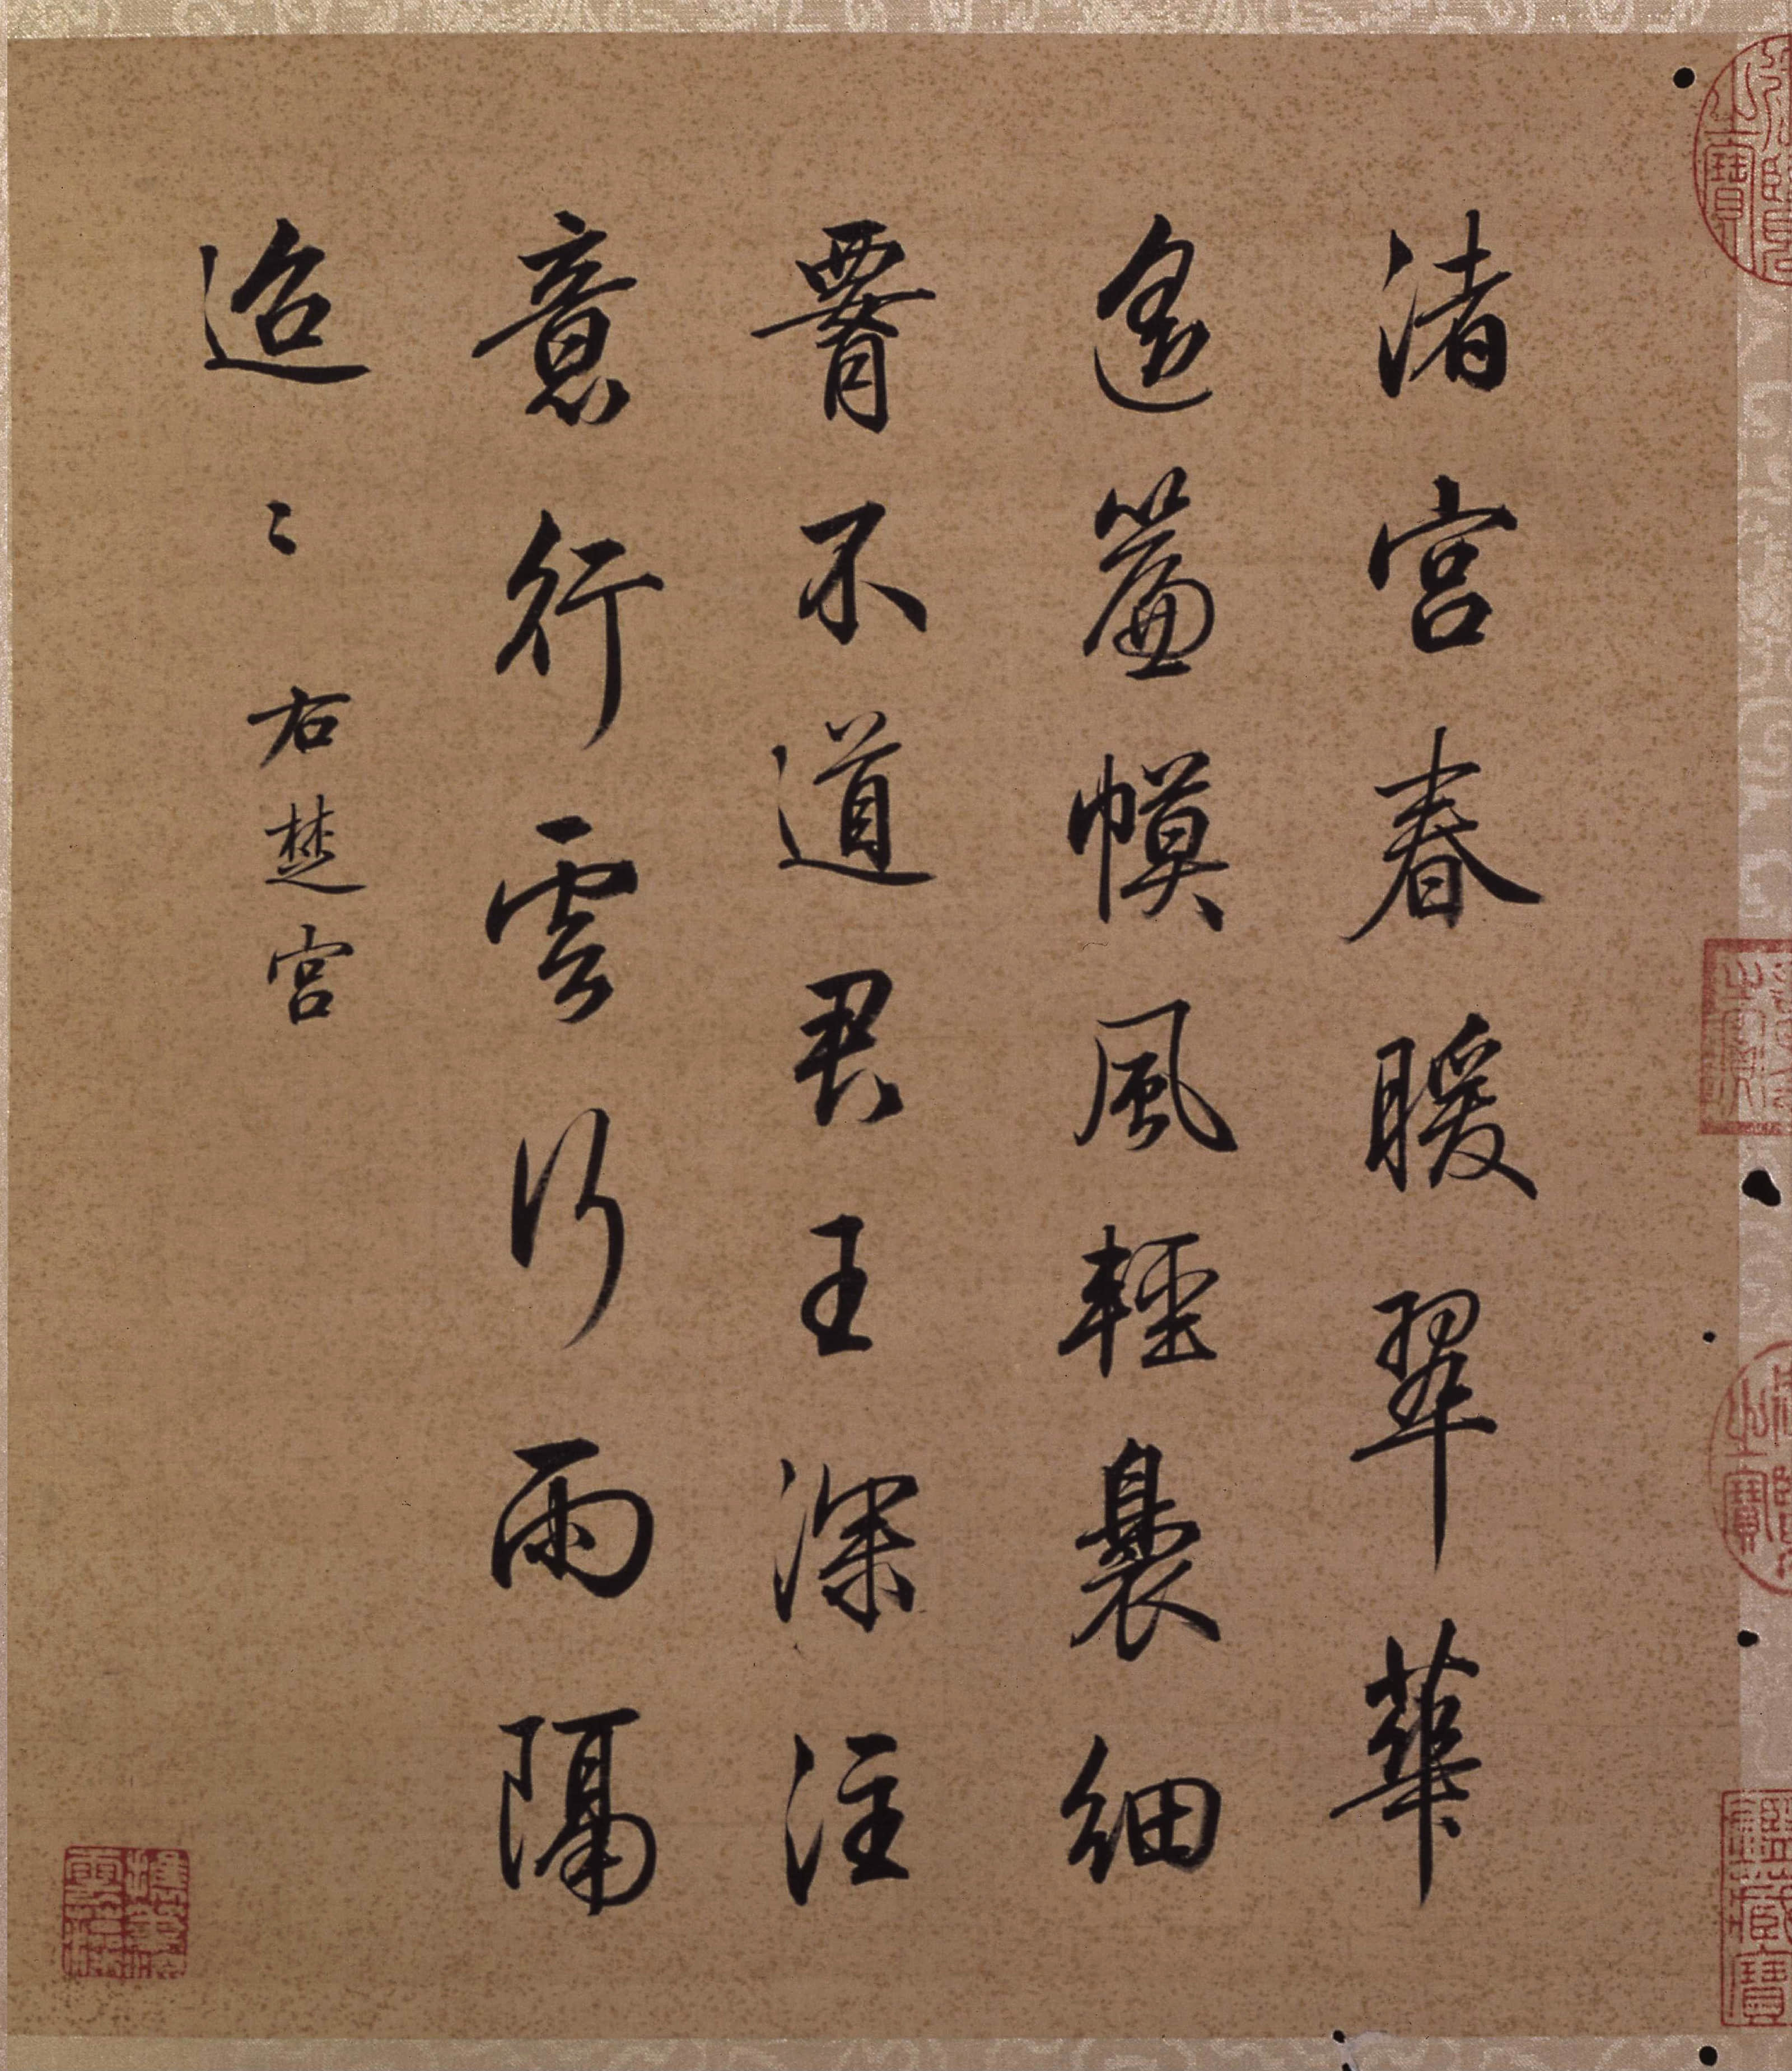 渚宮春暖翠華
遙簾幙風輕裊細
䙅不道君王深注
意行雲行雨隔
迢〻 右楚宮